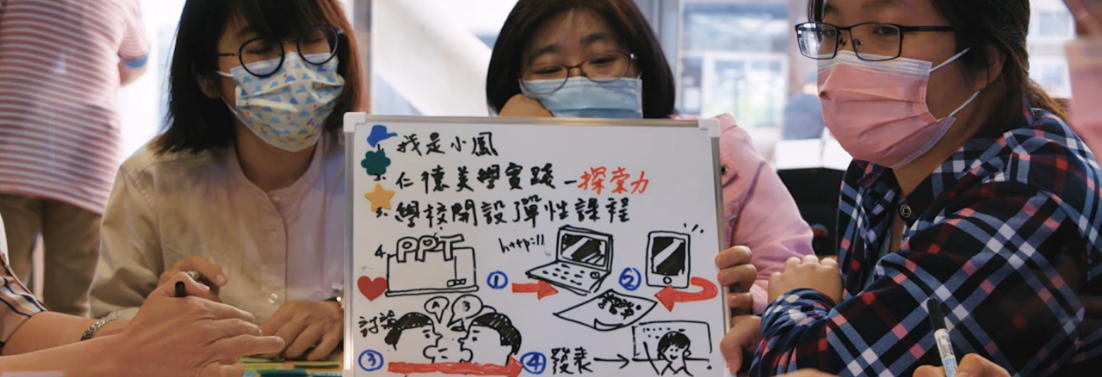 我是小鳳
2. 仁德美學實踐－探索力
3. 學校開設彈性課程
4. PPT
http://
① ②
討論
③ ④ 發表